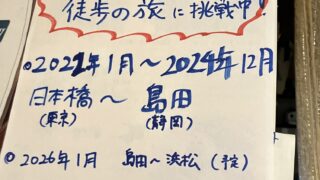 徒歩の旅に挑戦中!
◎2022年1月～2024年12月
日本橋～島田
(東京) (静岡)
◎2026年1月 島田～浜松(予定)